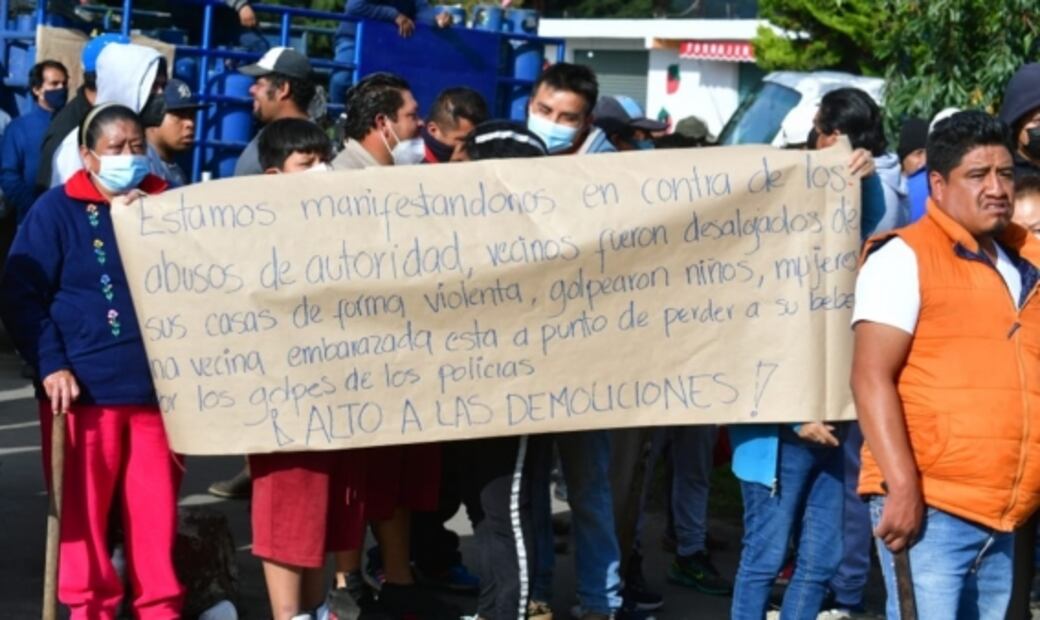 Estamos manifestandonos en contra de los
abusos de autoridad, vecinos fueron desalojados de
sus casas de forma violenta, golpearon niños, mujeres
na vecina embarazada esta a punto de perder a su bebe
or los golpes de los policias
¡ALTO A LAS DEMOLICIONES!